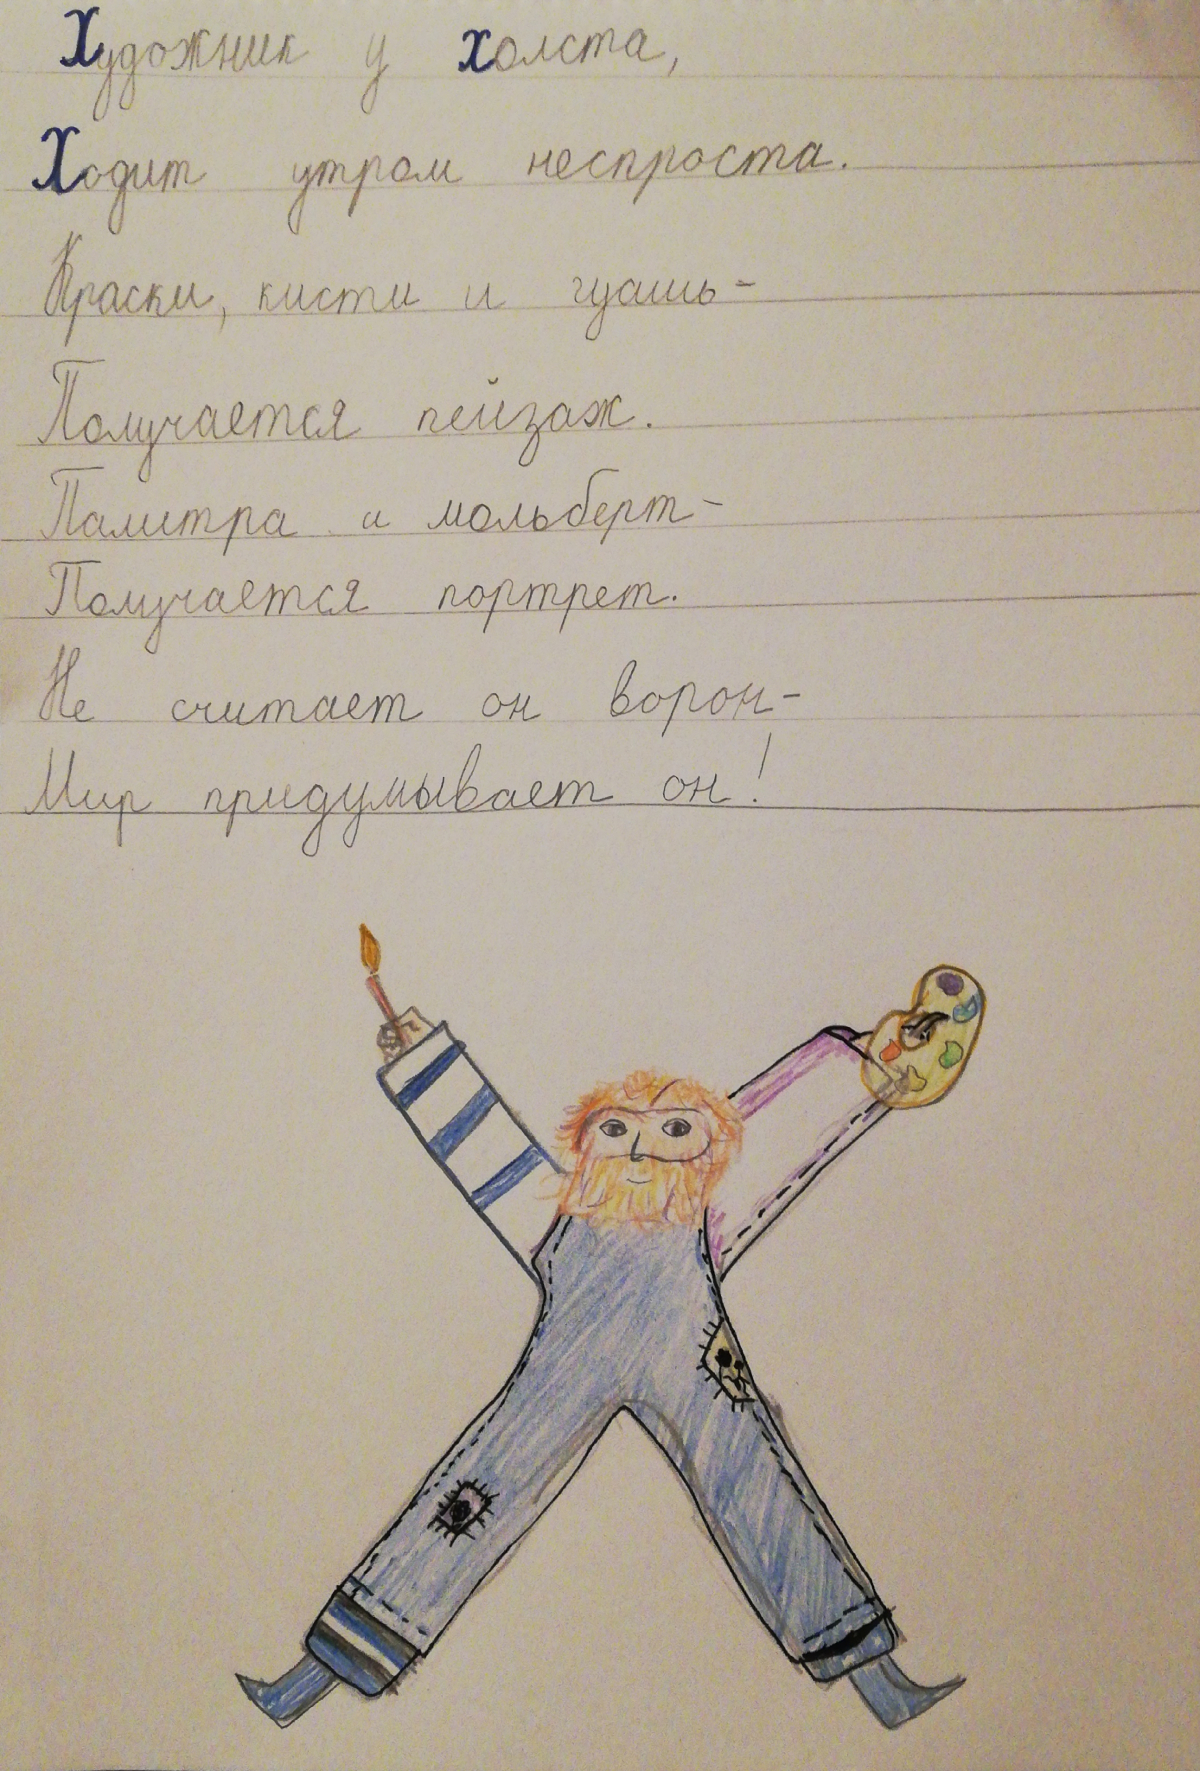 Художник у холста,
Ходит утром неспроста.
Краски, кисти и гуашь-
Получается пейзаж.
Палитра и мольберт-
Получается портрет.
Не считает он ворон-
Мир придумывает он!